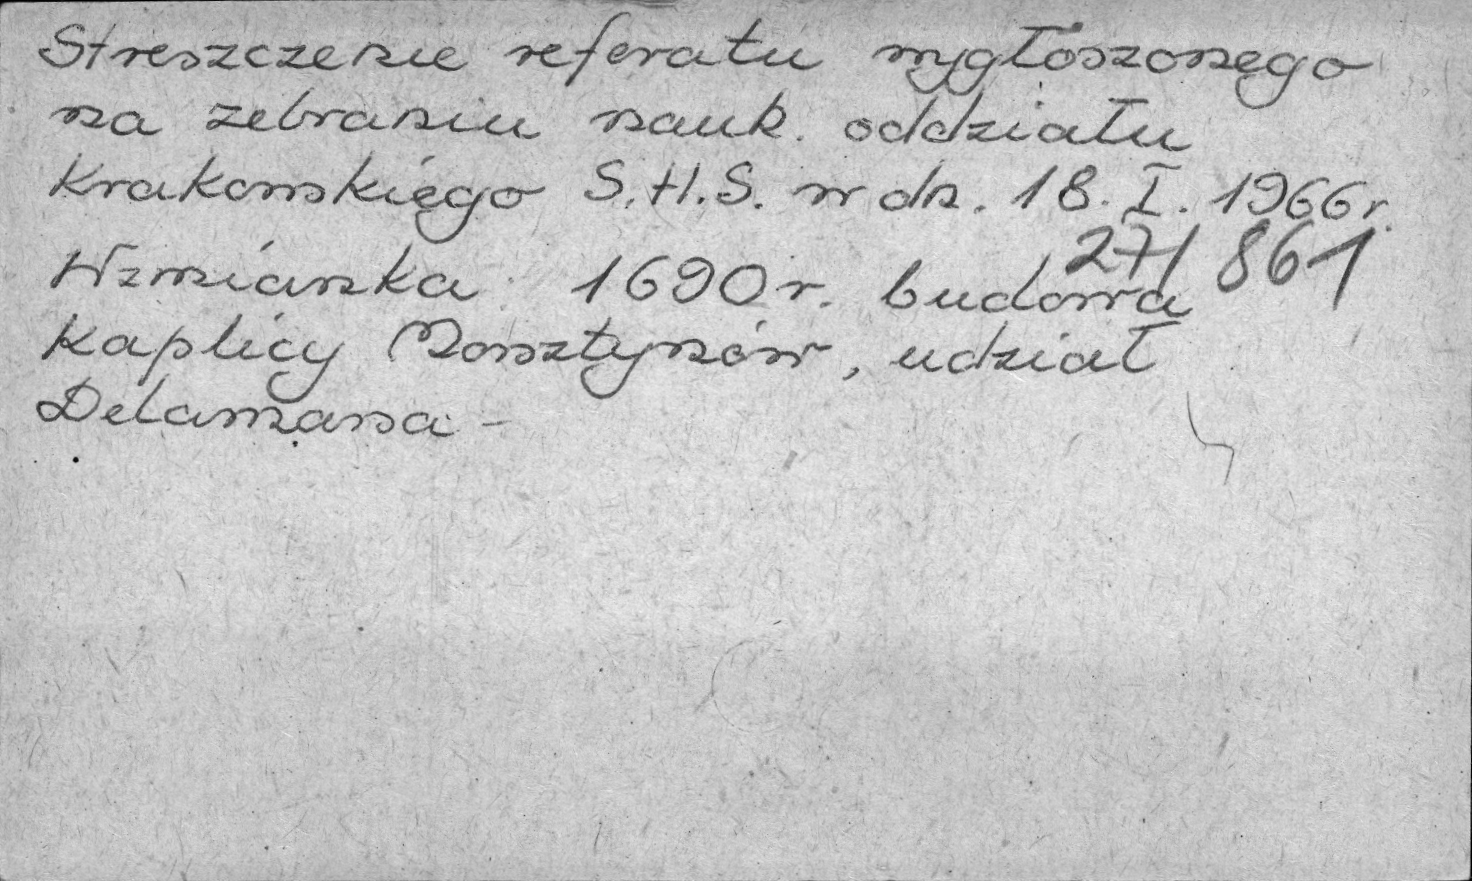 Streszczenie referatu wygłoszonego
na zebraniu nauk. oddziału
Krakowskiego S.H.S. w dn. 18. I. 1966 r.
27/861
Wzmianka 1690 r. budowa
Kaplicy Morsztynów, udział
Delamarsa -